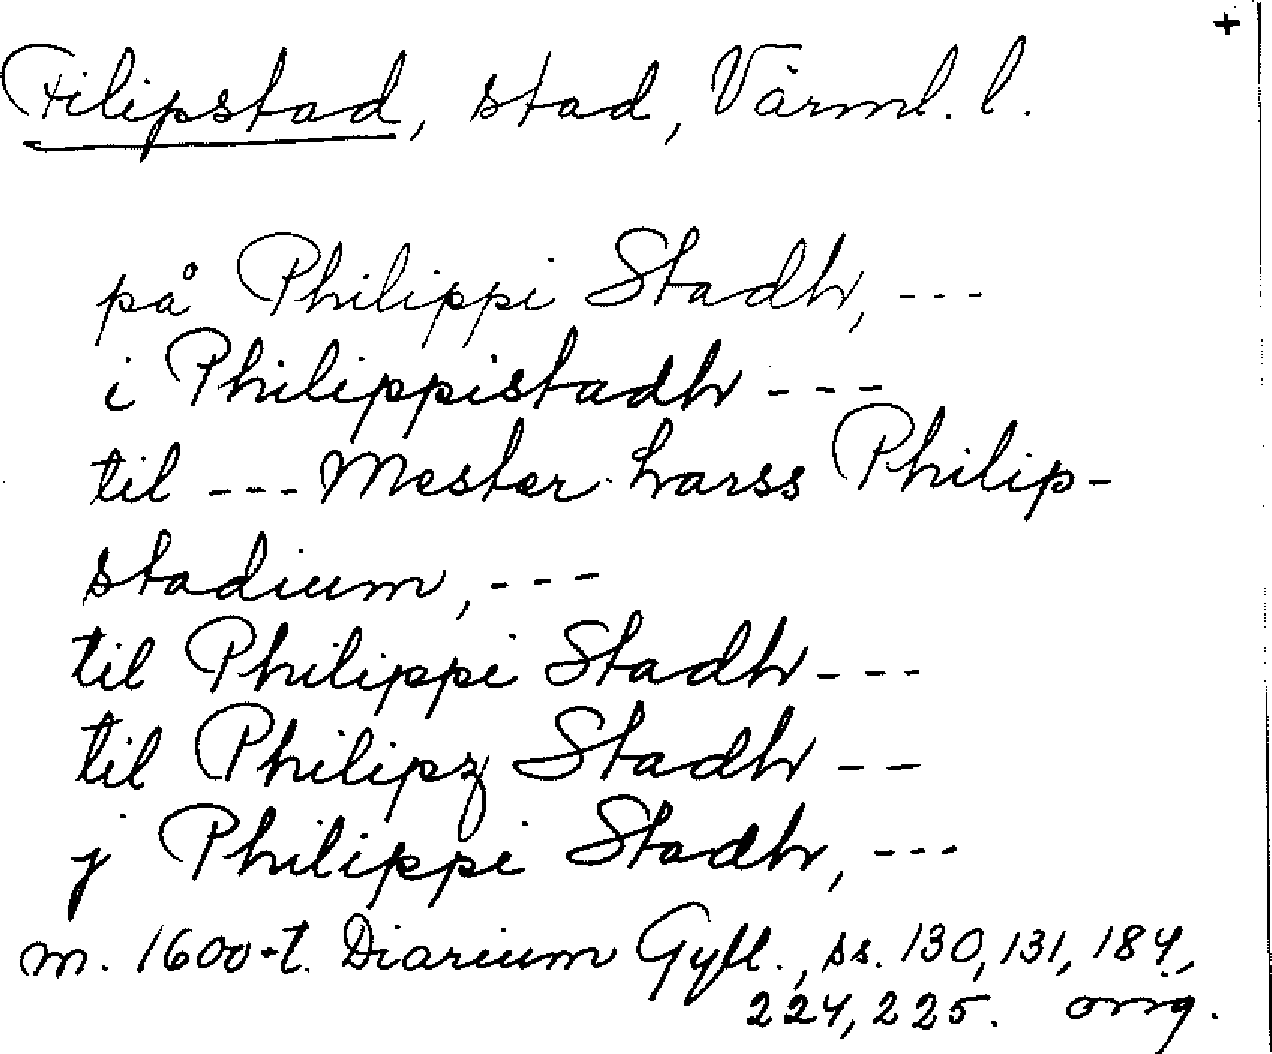 +
Filipstad, stad, Värml. l.
på Philippi Stadh, ---
i Philippistadh ---
til --- Mester Larss Philip-
stadium, ---
til Philippi Stadh ---
til Philipz Stadh --
j Philippi Stadh, ---
m. 1600-t. Diarium Gyll., ss. 130, 131, 184,
224, 225. orig.